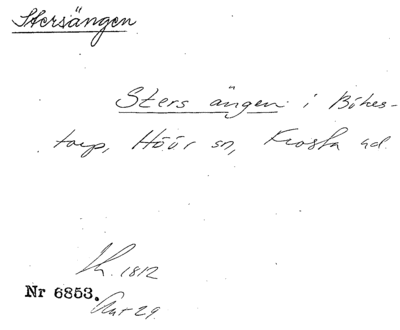 Stersängen
Sters ängen i Bökes-
torp, Höör sn, Frosta hd.
1812
Nr 6853.
29